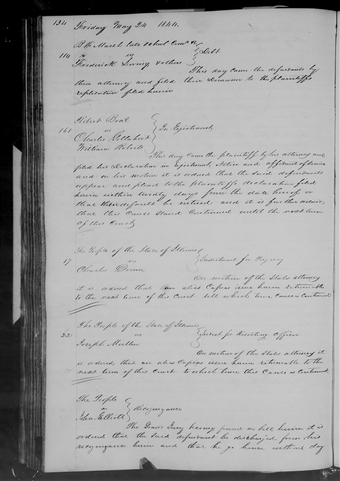 134
Friday May 24 1844.
B. F. March late school Comr &c
114 vs } Debt
Frederick & others
This day came the defendants by
their attorney and filed their Demurrer to the plaintiffs
replication filed herein
Robert
161 vs } In Ejectment
Charles
William Roberts
This day came the plaintiff by his attorney and
filed his Declaration in Ejectment, notice and affidavit of service
and on his motion it is ordered that the said defendants
appear and plead to the plaintiffs declaration filed
herein within twenty days from the date hereof or
that their defaults be entered and it is further ordered
that this Cause Stand Continued until the next term
of this Court
The People of the State of Illinois
17 vs } Indictment for
Charles Dunn
On motion of the States attorney
it is ordered that an alias Capias issue herein returnable
to the next term of this Court till which time Cause is Continued
The People of the State of Illinois
22 vs } Indict for Resisting Officer
Joseph
On motion of the States attorney it
is ordered that an alias Capias issue herein returnable to the
next term of this Court to which time this Cause is Continued
The People
vs } Recognizance
John Elliott
The Grand Jury having found no bill herein it is
ordered that the said defendant be discharged from his
recognizance herein and that he go hence without day